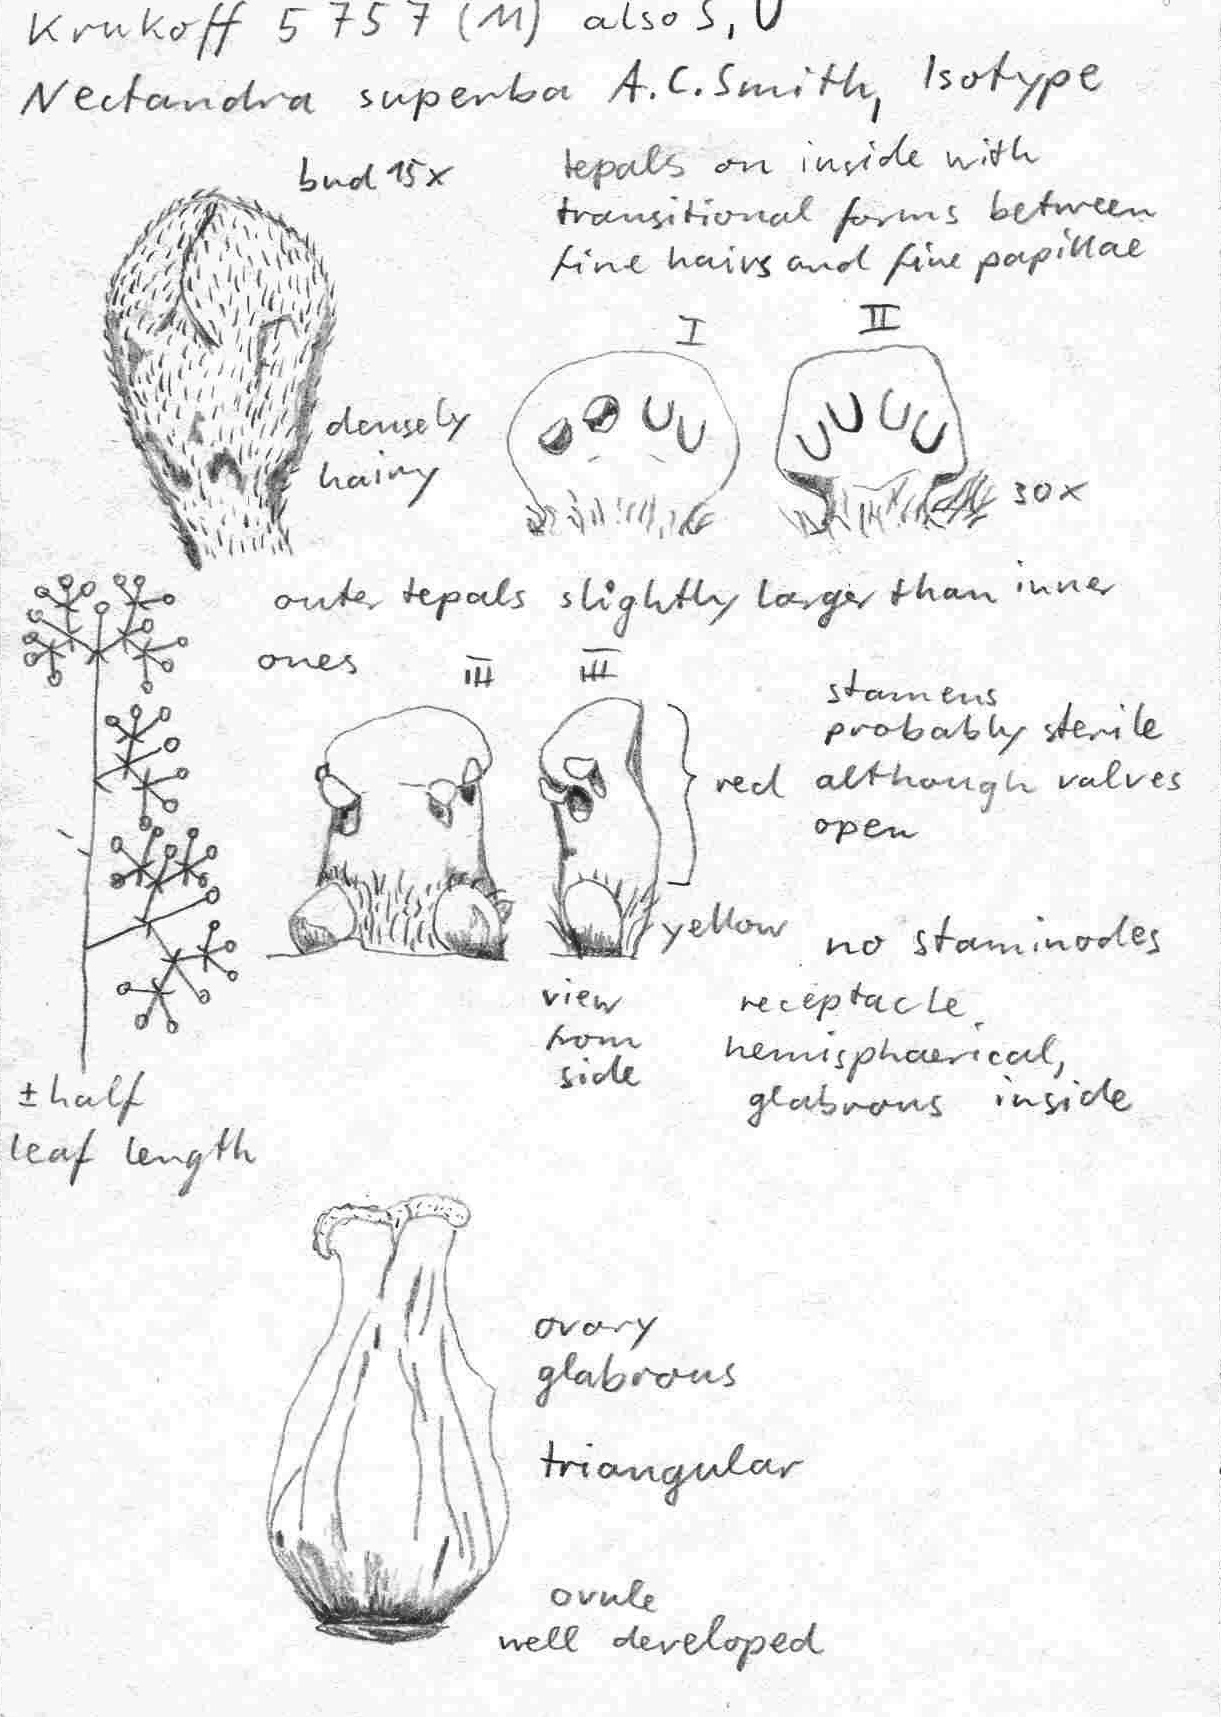 Krukoff 5757 (M) also S, U
Nectandra superba A.C.Smith, Isotype
bud 15x
tepals on inside with
transitional forms between
fine hairs and fine papillae
I
II
densely
hairy
30x
outer tepals slightly larger than inner
ones
III
III
stamens
probably sterile
red although valves
open
yellow
no staminodes
view
from
side
receptacle
hemisphaerical,
glabrous inside
± half
leaf length
ovary
glabrous
triangular
ovule
well developed